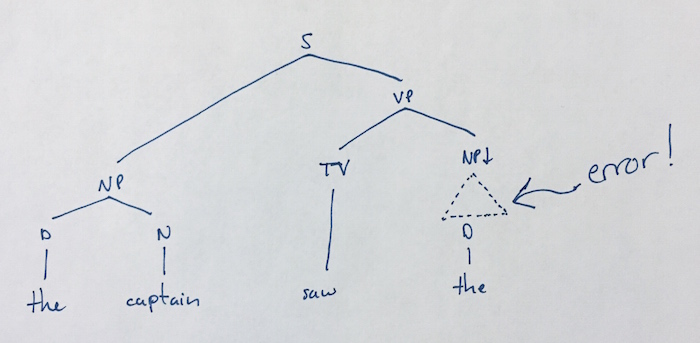 S
VP
NP TV NP↓ error!
D N D
the captain saw the